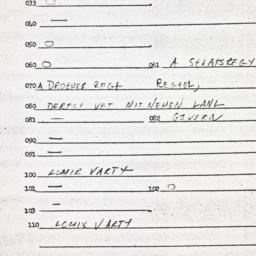 033 O
040 —
050 O
060 O 061 A SHLAFSREGY
070 A DROENER REGN REGION,
080 DERFST VET NIT NEMEN LANG
081 — 082 GIVERN
090 —
091 —
100 LOMIR VARTY
101 — 102 O
103 —
110 LOMIR VARTY